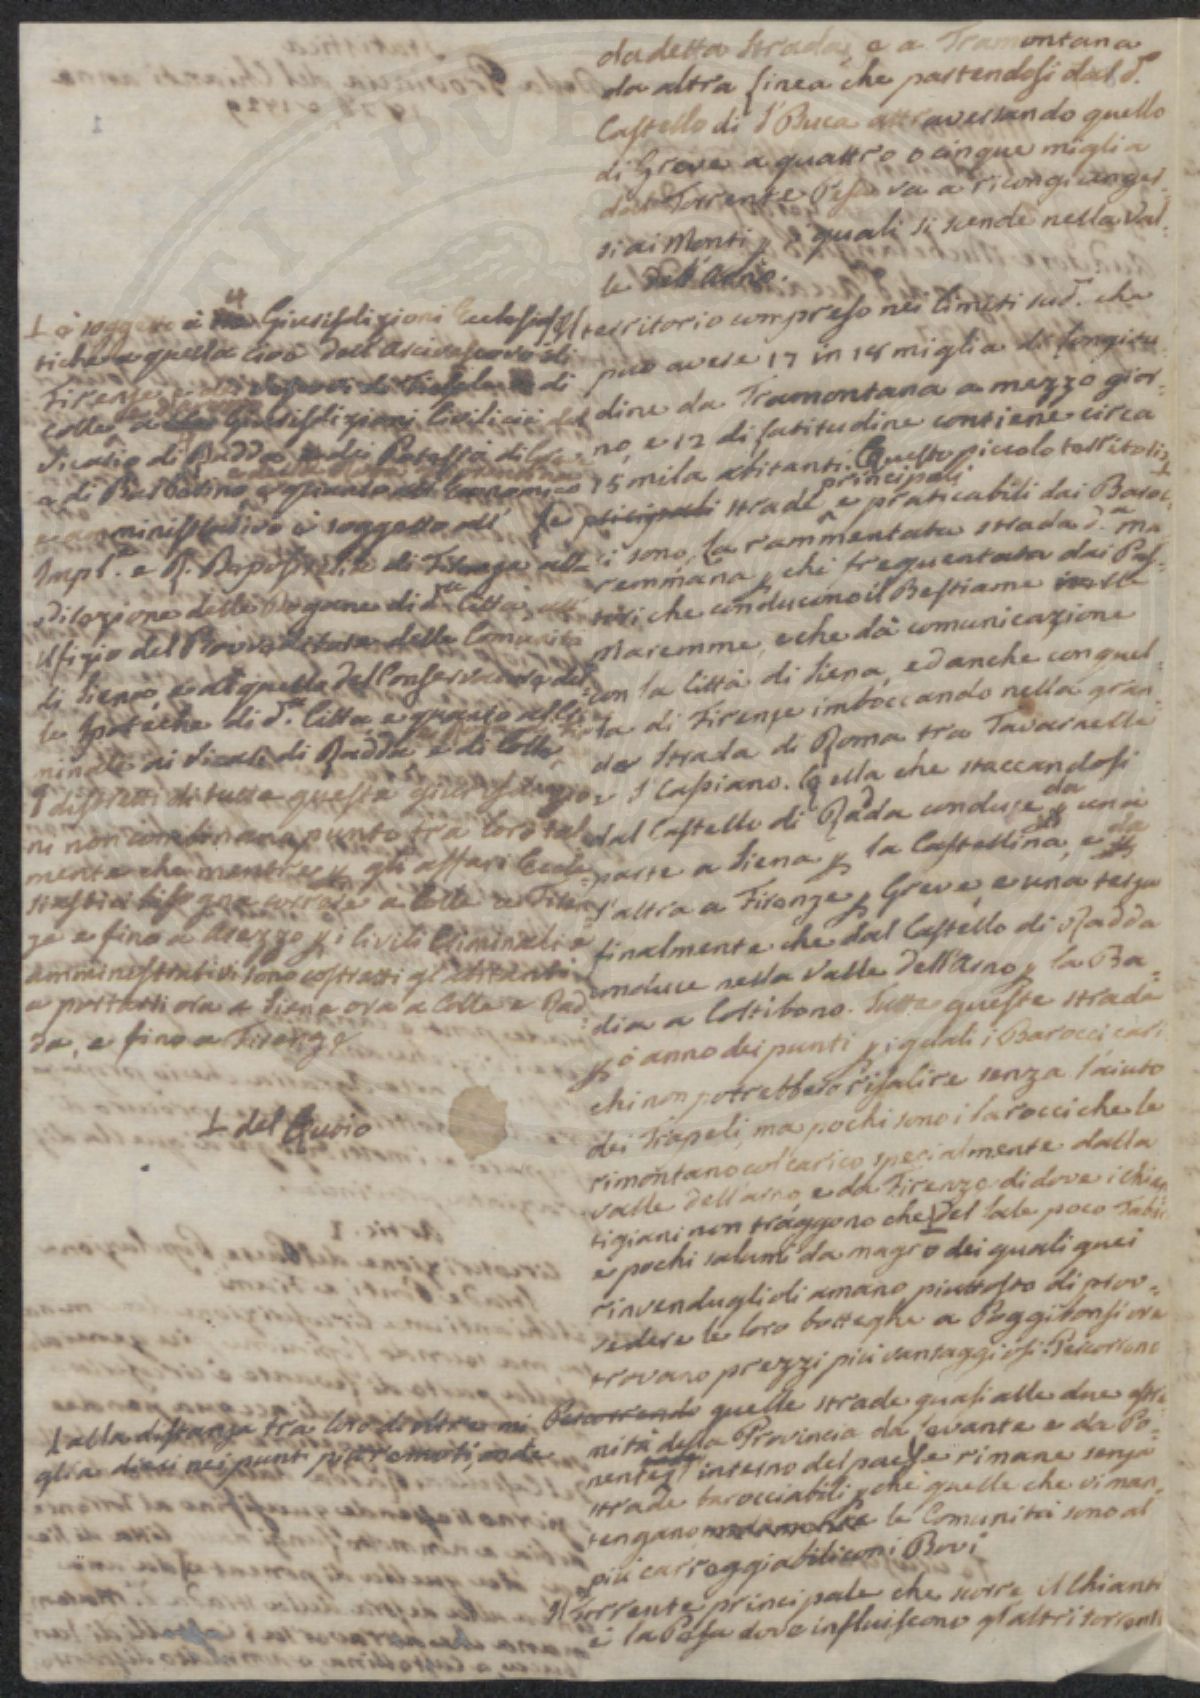 da detta strada, e a Tramontana
da altra linea che partendosi dal d.º
Castello di S. Buca attraversando quello
di Greve a quattro o cinque miglia
dal Torrente Pesa va a ricongiunger-
si ai Monti p i quali si scende nella Val-
le dell'Arno.
territorio compreso nei limiti sud.i che
può avere 17 in 18 miglia di longitu-
dine da Tramontana a mezzo gior-
no, e 12 di latitudine contiene circa
15 mila abitanti. Questo piccolo territorio
principali
Le strade e praticabili dai Baroc-
ci sono, la rammentata strada d.a Ma-
remmana, p che frequentata dai Pas-
tori che conducono il Bestiame
Maremme, e che dà comunicazione
con la Città di Siena, ed anche con quel-
la di Firenze imboccando nella gran
de Strada di Roma tra Tavarnelle
e S. Casciano. Quella che staccandosi
dal Castello di Radda conduce da una
parte a Siena p la Castellina, e da
l'altra a Firenze p Greve, e una terza
finalmente che dal Castello di Radda
conduce nella Valle dell'Arno p la Ba-
dia a Coltibono. Tutte queste strade
p ò anno dei punti p i quali i Barocci cari
chi non potrebbero risalire senza l'aiuto
dei Trapeli, ma pochi sono i barocci che le
rimontano col carico specialmente dalla
valle dell'Arno e da Firenze di dove i chian
tigiani non traggono che del sale poco
e pochi salumi da magro dei quali quei
rivenduglioli amano piuttosto di prov-
vedere le loro botteghe a Poggibonsi ove
trovano prezzi più vantaggiosi. Percorrono
Percorrendo quelle strade quasi alle due estre
mità della Provincia da levante e da Po-
nente interno del paese rimane senza
strade barocciabili p che quelle che vi man-
tengano le Comunità sono al
più carreggiabili con i Bovi
Il Torrente principale che scorre il Chianti
è la Pesa dove influiscono gl'altri torrenti
è soggetto a 4 Giurisdizioni Ecclesias
tiche a quella cioè dell'Arcivescovo di
Firenze e di
Colle a Giurisdizioni Civili cioè del
Vicario di Radda del Potestà di Greve
e di Barbarino e quanto all'Economico
e amministrativo è soggetto all'
Imp.e e R. di Firenze alla
direzione delle Dogane di d.a Città all'
Ufizio del Provveditore della Comunità
di Siena, e a quello del Conservatore del-
le Ipoteche di d.a Città, e quanto al Cri
minale ai Vicari di Radda e di Colle
I distretti di tutte queste giurisdizio-
ni non combinano punto tra loro tal-
mente che mentre p gli affari Eccle-
siastici bisogna correre a Colle a Firen-
ze e fino a Arezzo p i Civili Criminali e
amministrativi sono costretti gl'abitanti
a portarsi ora a Siena ora a Colle a Rad-
da, e fino a Firenze
⊥ del
⊥ alla distanza tra loro di oltre mi
glia dieci nei punti più remoti, onde